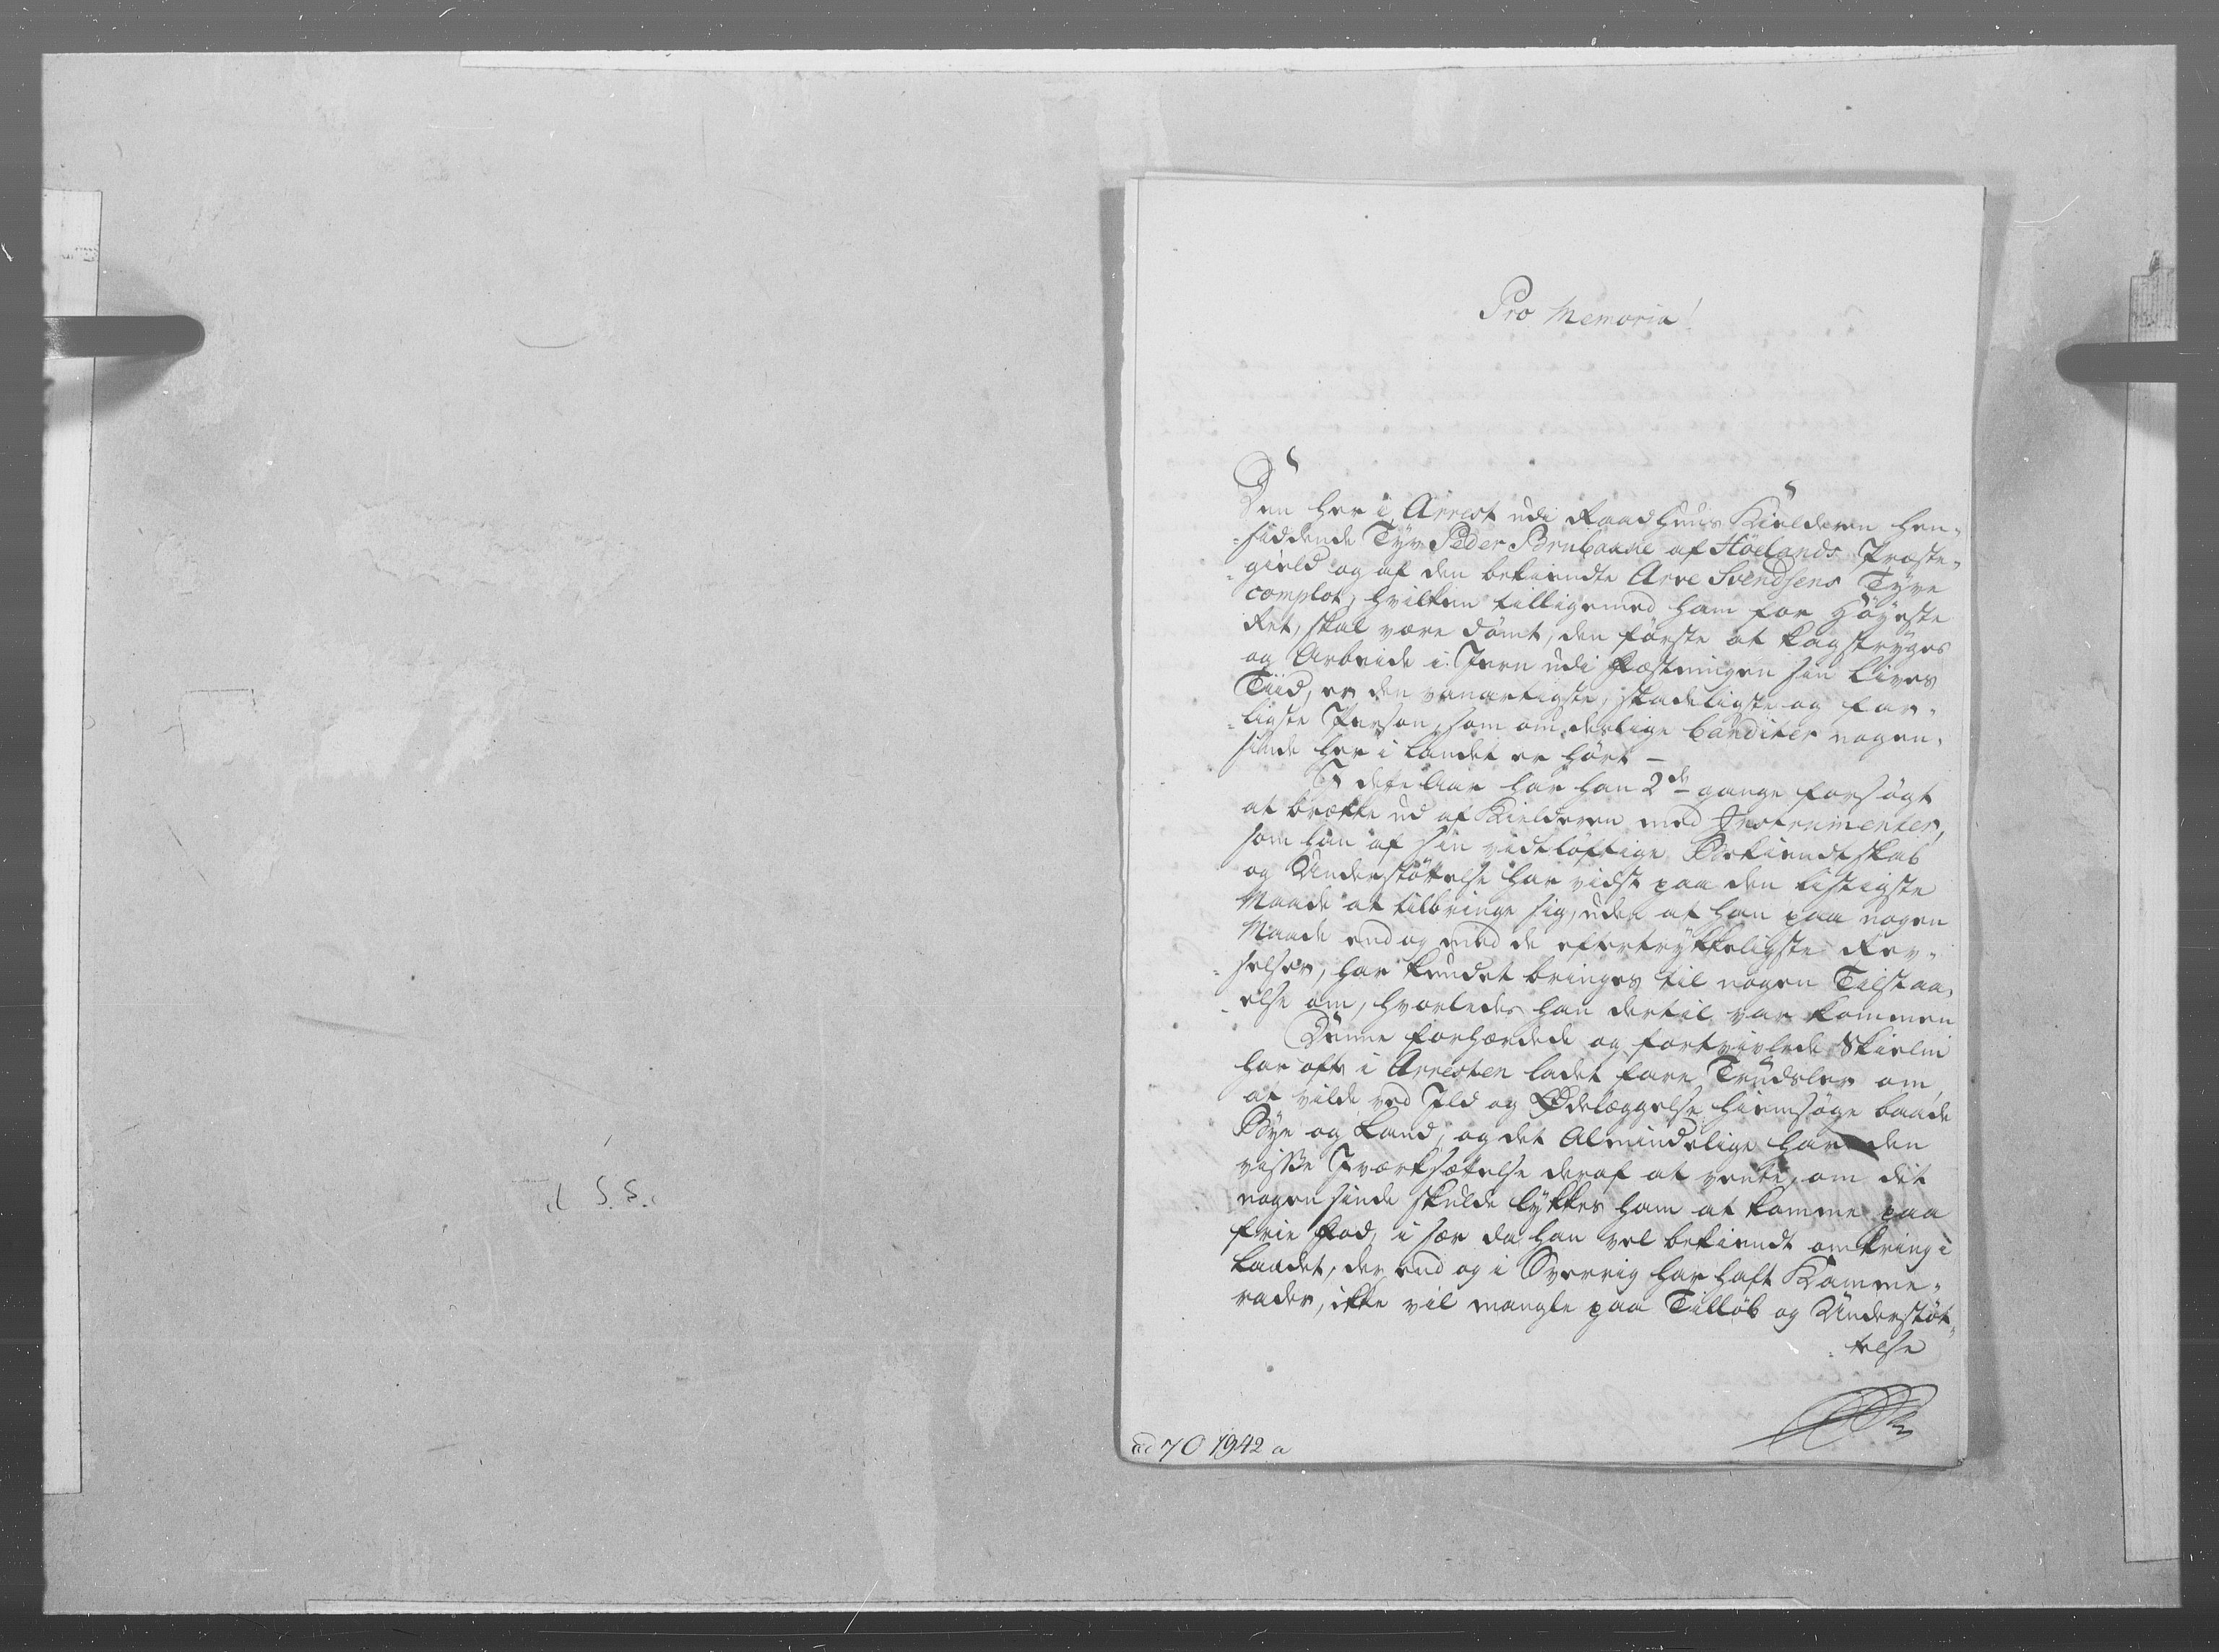 Pro Memoria!
Den her i Arrest udi Raadhuus Kielderen hen-
siddende Tyv Peder Brubakke af Hölands Præste-
gield og af den bekiendte Arve Svendsens Tyve
complot, hvilken tilligemed ham for Höÿeste
Ret, skal være dömt, den förste at kagstryges
og Arbeide i Jern udi Fæstningen sin Lives
Tiid, er den vanartigste, skadeligste og far-
ligste Person, som om deslige banditer nogen-
sinde her i Landet er hört –
I dette Aar har han 2de gange forsögt
at brække ud af Kielderen med Instrumenter,
som han af sin vidtlöftige Bekiendtskab
og Understöttelse har vidst paa den listigste
Maade at tilbringe sig, uden at han paa nogen
Maade end og med de eftertrykkeligste Rev-
selser, har kundet bringes til nogen Tilstaa-
else om, hvorledes han dertil var kommen
Denne forhærdede og fortvivlede Skielm
har ofte i Arresten ladet fare Trudsler om
at vilde ved Ild og Ödelæggelse hiemsöge baade
Bye og Land, og det Almindelige har den
visse Iværksættelse deraf at vente, om det
nogensinde skulde lykkes ham at komme paa
frie Fod, i sær da han vel bekiendt omkring i
Landet, der end og i Sverrig har haft Kamme-
rader, ikke vil mangle paa Tillöb og Understöt-
telse
ad 70 1942 a